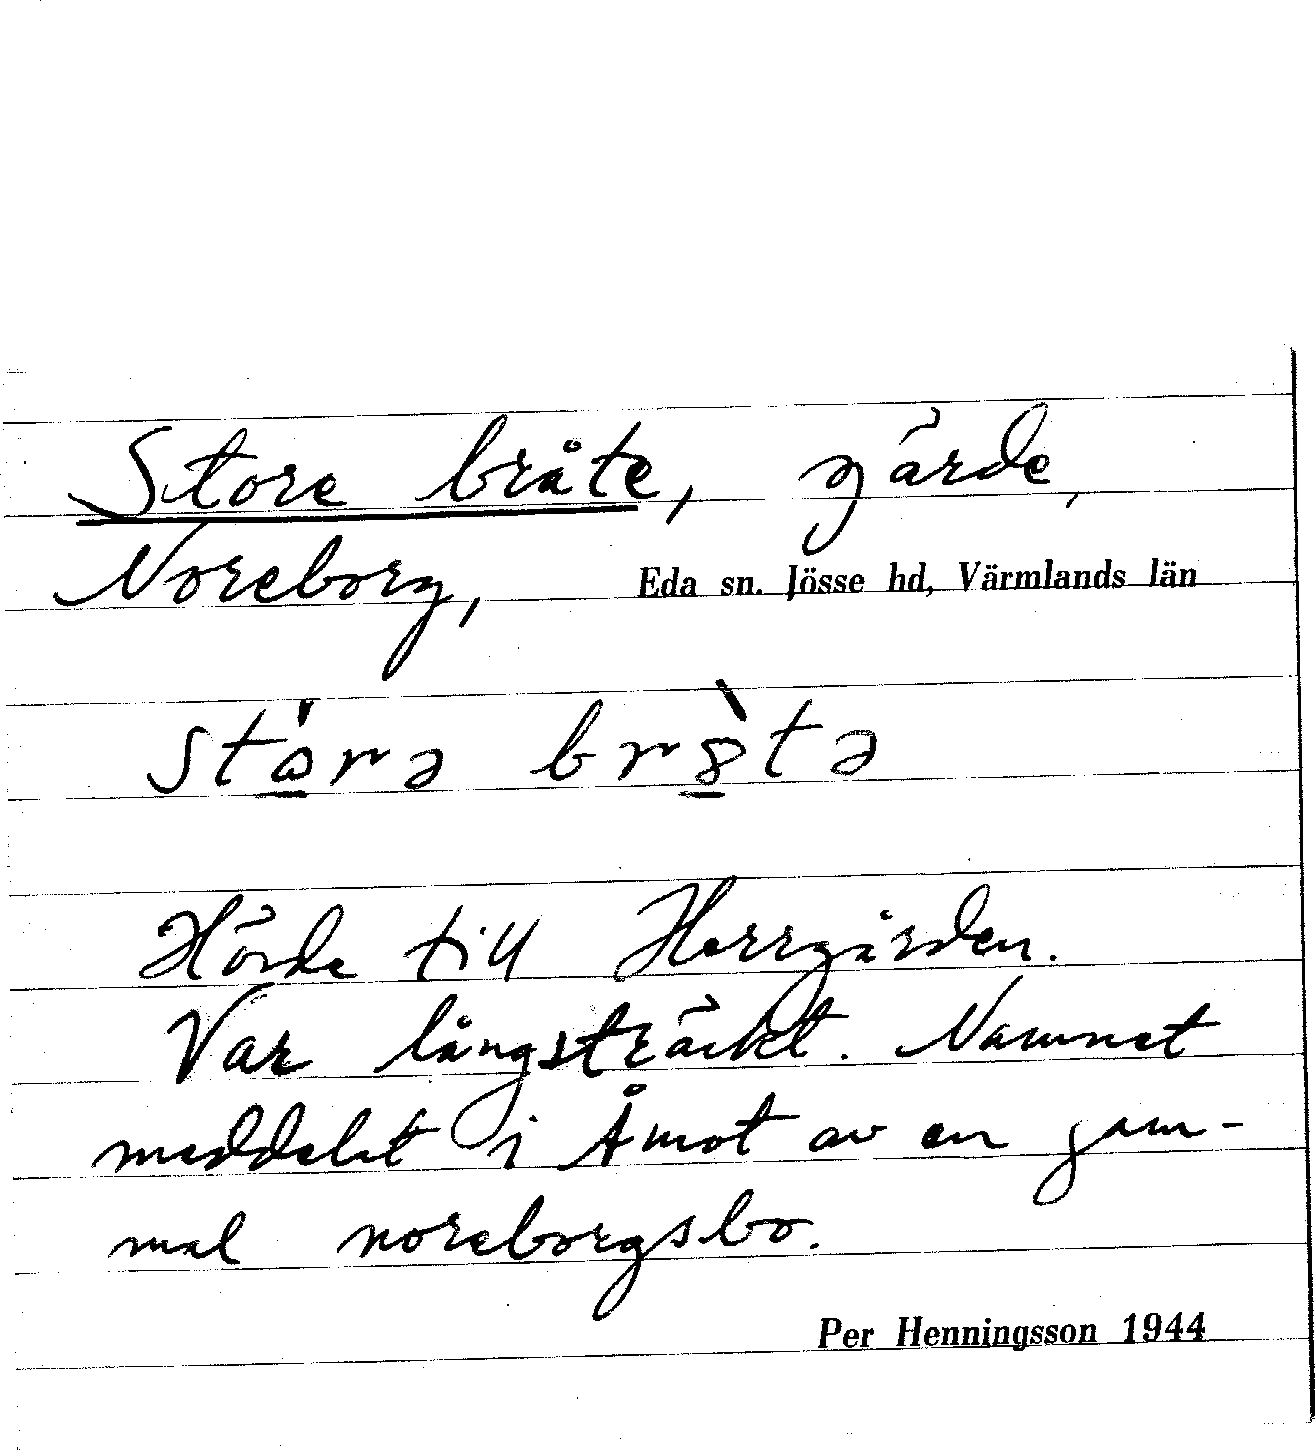 Store bråte, gärde,
Noreborg, Eda sn. Jösse hd, Värmlands län
stɷ̲́rə br8̲̀tə
Hörde till Herrgården.
Var långsträckt. Namnet
meddelat i Åmot av en gam-
mal noreborgsbo.
Per Henningsson 1944